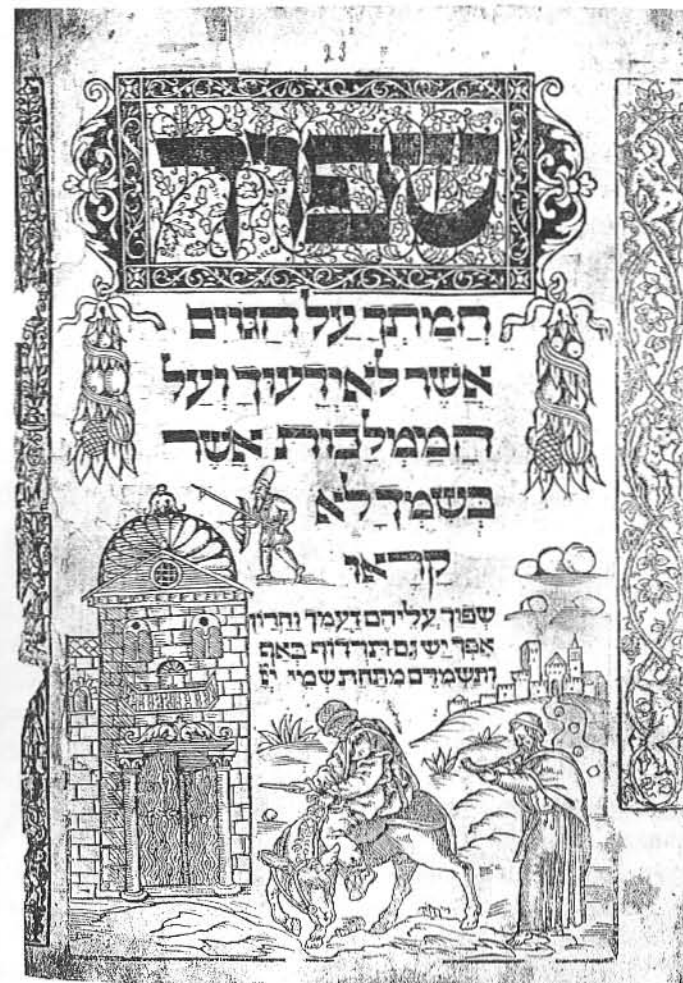 23
שפך
חמתך על הגוים
אשר לא ידעוך ועל
הממלכות אשר
בשמך לא
קראו
שפוך עליהם זעמך וחרון
אפך ישגם תרדוף באף
ותשמדם מתחת שמי יי